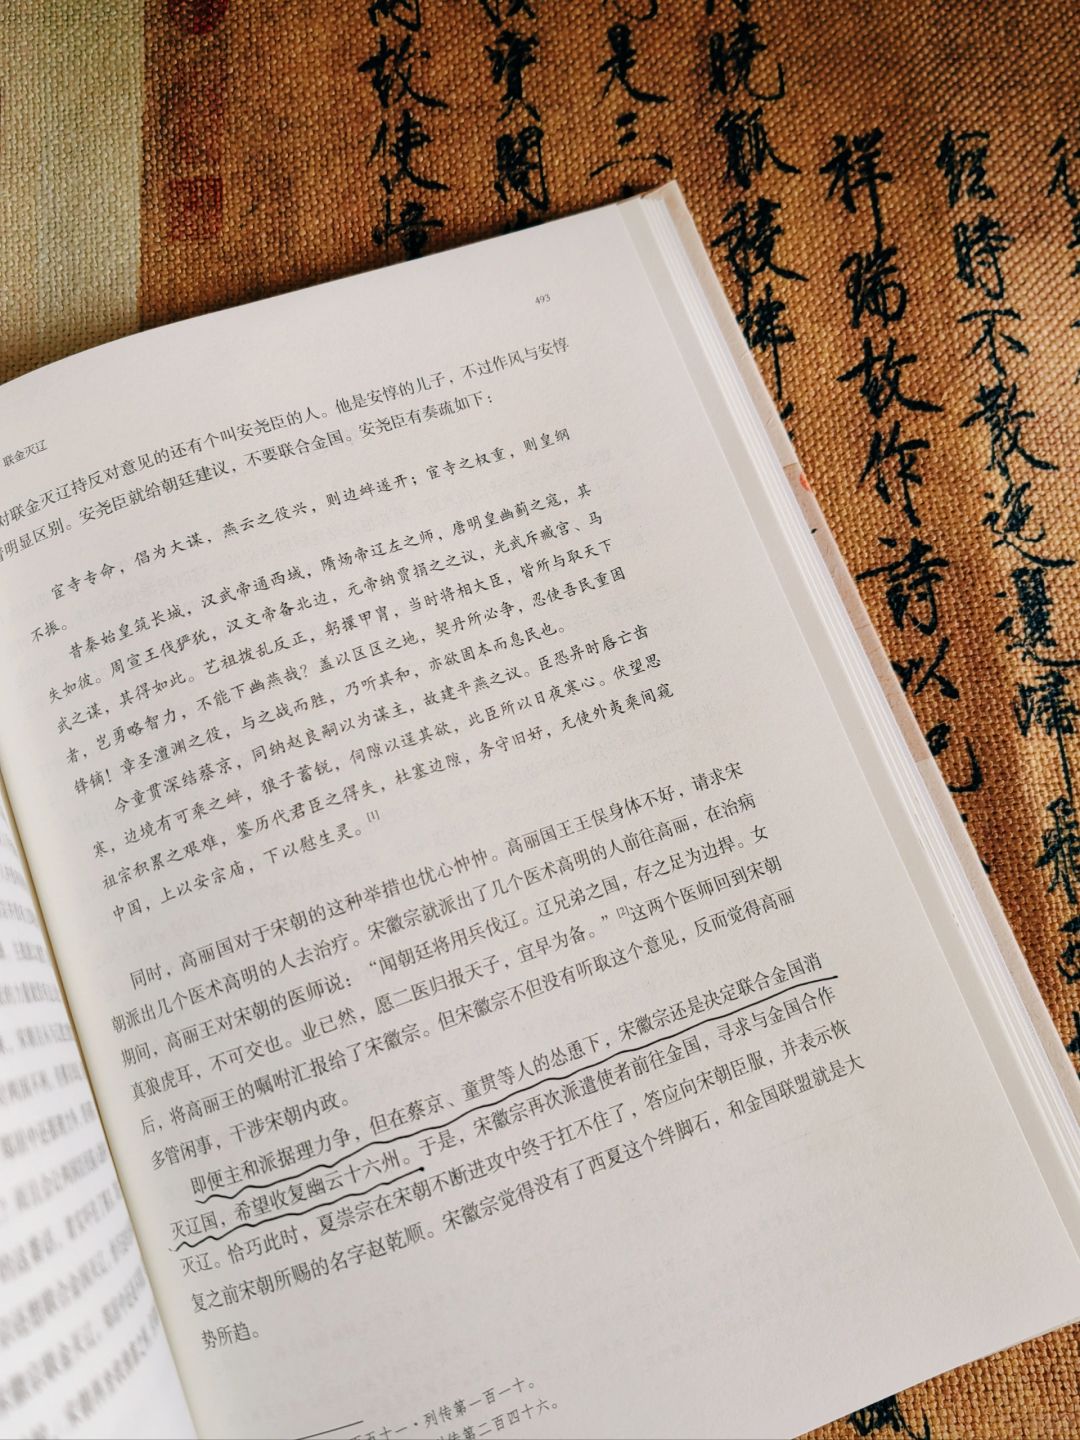 493
联金灭辽
对联金灭辽持反对意见的还有个叫安尧臣的人。他是安惇的儿子，不过作风与安惇
明显区别。安尧臣就给朝廷建议，不要联合金国。安尧臣有奏疏如下：
宦寺专命，倡为大谋，燕云之役兴，则边衅遂开；宦寺之权重，则皇纲
不振。
昔秦始皇筑长城，汉武帝通西域，隋炀帝辽左之师，唐明皇幽蓟之寇，其
失如彼。周宣王伐猃狁，汉文帝备北边，元帝纳贾捐之之议，光武斥臧宫、马
武之谋，其得如此。艺祖拨乱反正，躬擐甲胄，当时将相大臣，皆所与取天下
者，岂勇略智力，不能下幽燕哉？盖以区区之地，契丹所必争，忍使吾民重困
锋镝！章圣澶渊之役，与之战而胜，乃听其和，亦欲固本而息民也。
今童贯深结蔡京，同纳赵良嗣以为谋主，故建平燕之议。臣恐异时唇亡齿
寒，边境有可乘之衅，狼子蓄锐，伺隙以逞其欲，此臣所以日夜寒心。伏望思
祖宗积累之艰难，鉴历代君臣之得失，杜塞边隙，务守旧好，无使外夷乘间窥
中国，上以安宗庙，下以慰生灵。[1]
同时，高丽国对于宋朝的这种举措也忧心忡忡。高丽国王王俣身体不好，请求宋
朝派出几个医术高明的人去治疗。宋徽宗就派出了几个医术高明的人前往高丽，在治病
期间，高丽王对宋朝的医师说：“闻朝廷将用兵伐辽。辽兄弟之国，存之足为边捍。女
真狼虎耳，不可交也。业已然，愿二医归报天子，宜早为备。”[2]这两个医师回到宋朝
后，将高丽王的嘱咐汇报给了宋徽宗。但宋徽宗不但没有听取这个意见，反而觉得高丽
多管闲事，干涉宋朝内政。
即便主和派据理力争，但在蔡京、童贯等人的怂恿下，宋徽宗还是决定联合金国消
灭辽国，希望收复幽云十六州。于是，宋徽宗再次派遣使者前往金国，寻求与金国合作
灭辽。恰巧此时，夏崇宗在宋朝不断进攻中终于扛不住了，答应向宋朝臣服，并表示恢
复之前宋朝所赐的名字赵乾顺。宋徽宗觉得没有了西夏这个绊脚石，和金国联盟就是大
势所趋。
百五十一·列传第一百一十。
列传第二百四十六。
故使
资阅
是三
晓觚棱
祥瑞故作詩以
経時不散迤邐歸